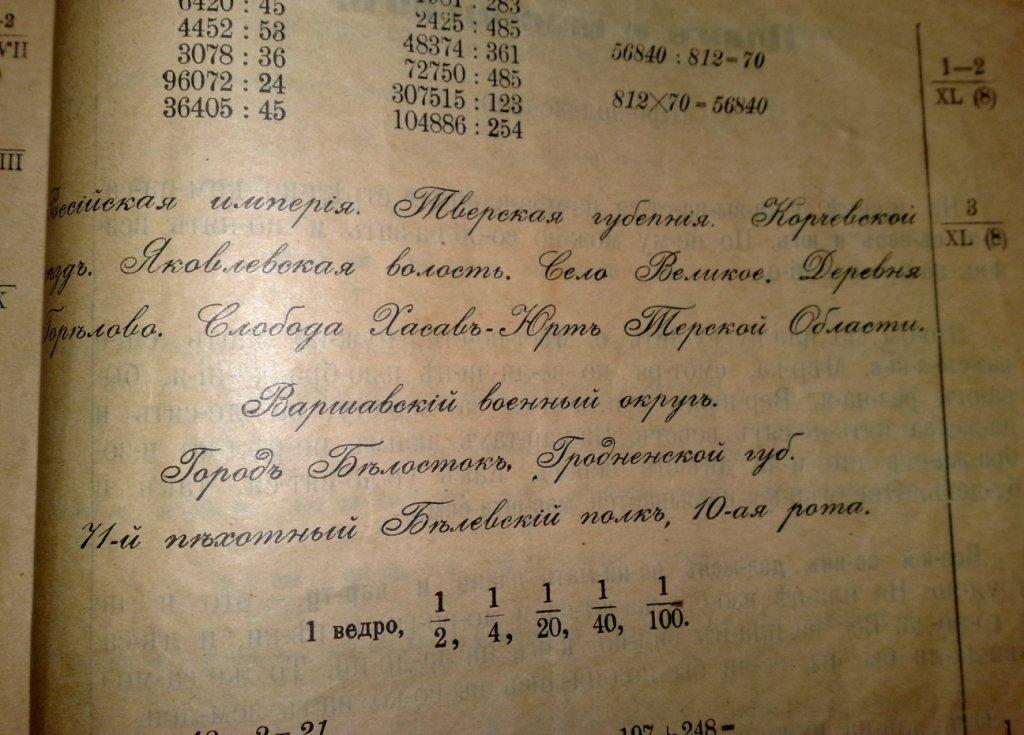 6420 : 45
4452 : 53
3078 : 36
96072 : 24
36405 : 45
: 283
2425 : 485
48374 : 361
72750 : 485
307515 : 123
104886 : 254
56840 : 812 = 70
812×70 = 56840
1—2
XL (8)
3
XL (8)
Россійская имперія. Тверская губернія. Корчевской
уѣздъ. Яковлевская волость. Село Великое. Деревня
Горѣлово. Слобода Хасавъ-Юртъ Терской Области.
Варшавскій военный округъ.
Городъ Бѣлостокъ, Гродненской губ.
71-й пѣхотный Бѣлевскій полкъ, 10-ая рота.
1 ведро, 1/2, 1/4, 1/20, 1/40, 1/100.